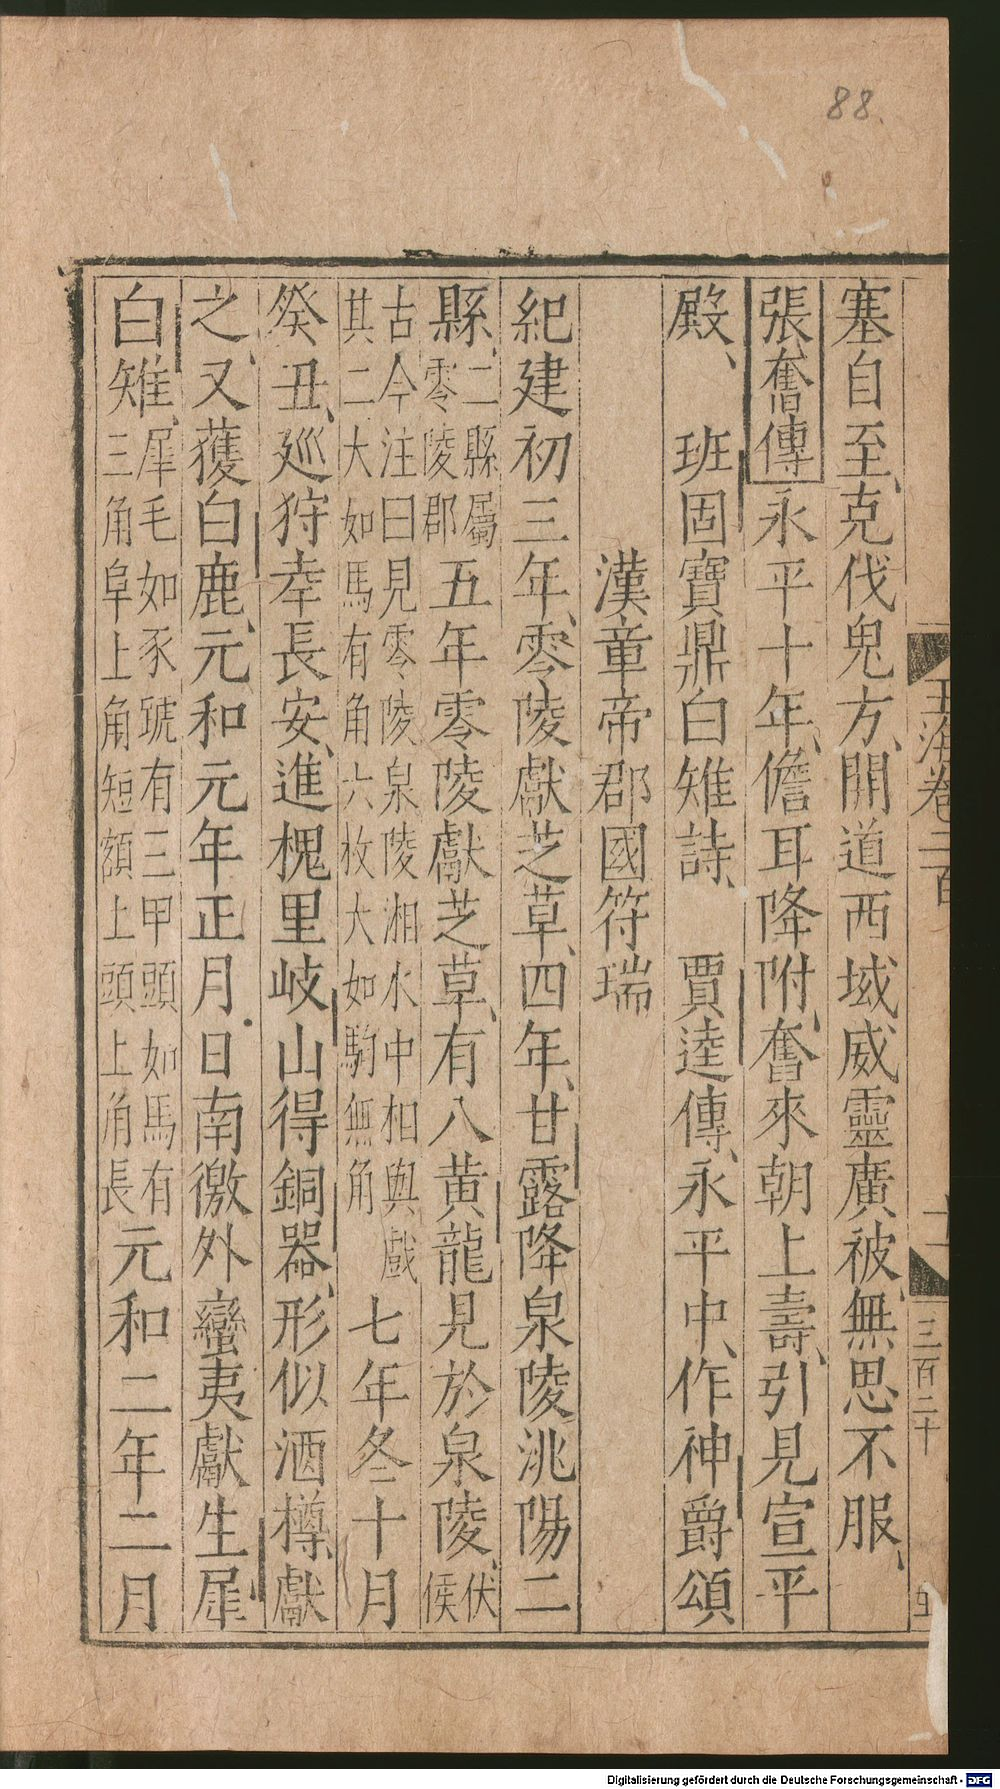 88.
玉海卷二百
三百二十
塞自至、克伐鬼方、開道西域、威靈廣被、無思不服、
張奮傳永平十年、儋耳降附、奮來朝上壽、引見宣平
殿、　班固寶鼎白雉詩、　賈逵傳、永平中、作神爵頌
漢章帝郡國符瑞
紀建初三年、零陵獻芝草、四年、甘露降泉陵洮陽二
縣、二縣屬零陵郡五年零陵獻芝草、有八黄龍見於泉陵、伏侯
古今注曰見零陵泉陵湘水中相與戲其二大如馬有角六枚大如駒無角七年冬十月
癸丑、巡狩幸長安、進槐里岐山得銅器、形似酒樽、獻
之、又獲白鹿、元和元年正月日南徼外蠻夷獻生犀、
白雉、犀毛如豕蹏有三甲頭如馬有三角阜上角短額上頭上角長元和二年二月
Digitalisierung gefördert durch die Deutsche Forschungsgemeinschaft - DFG